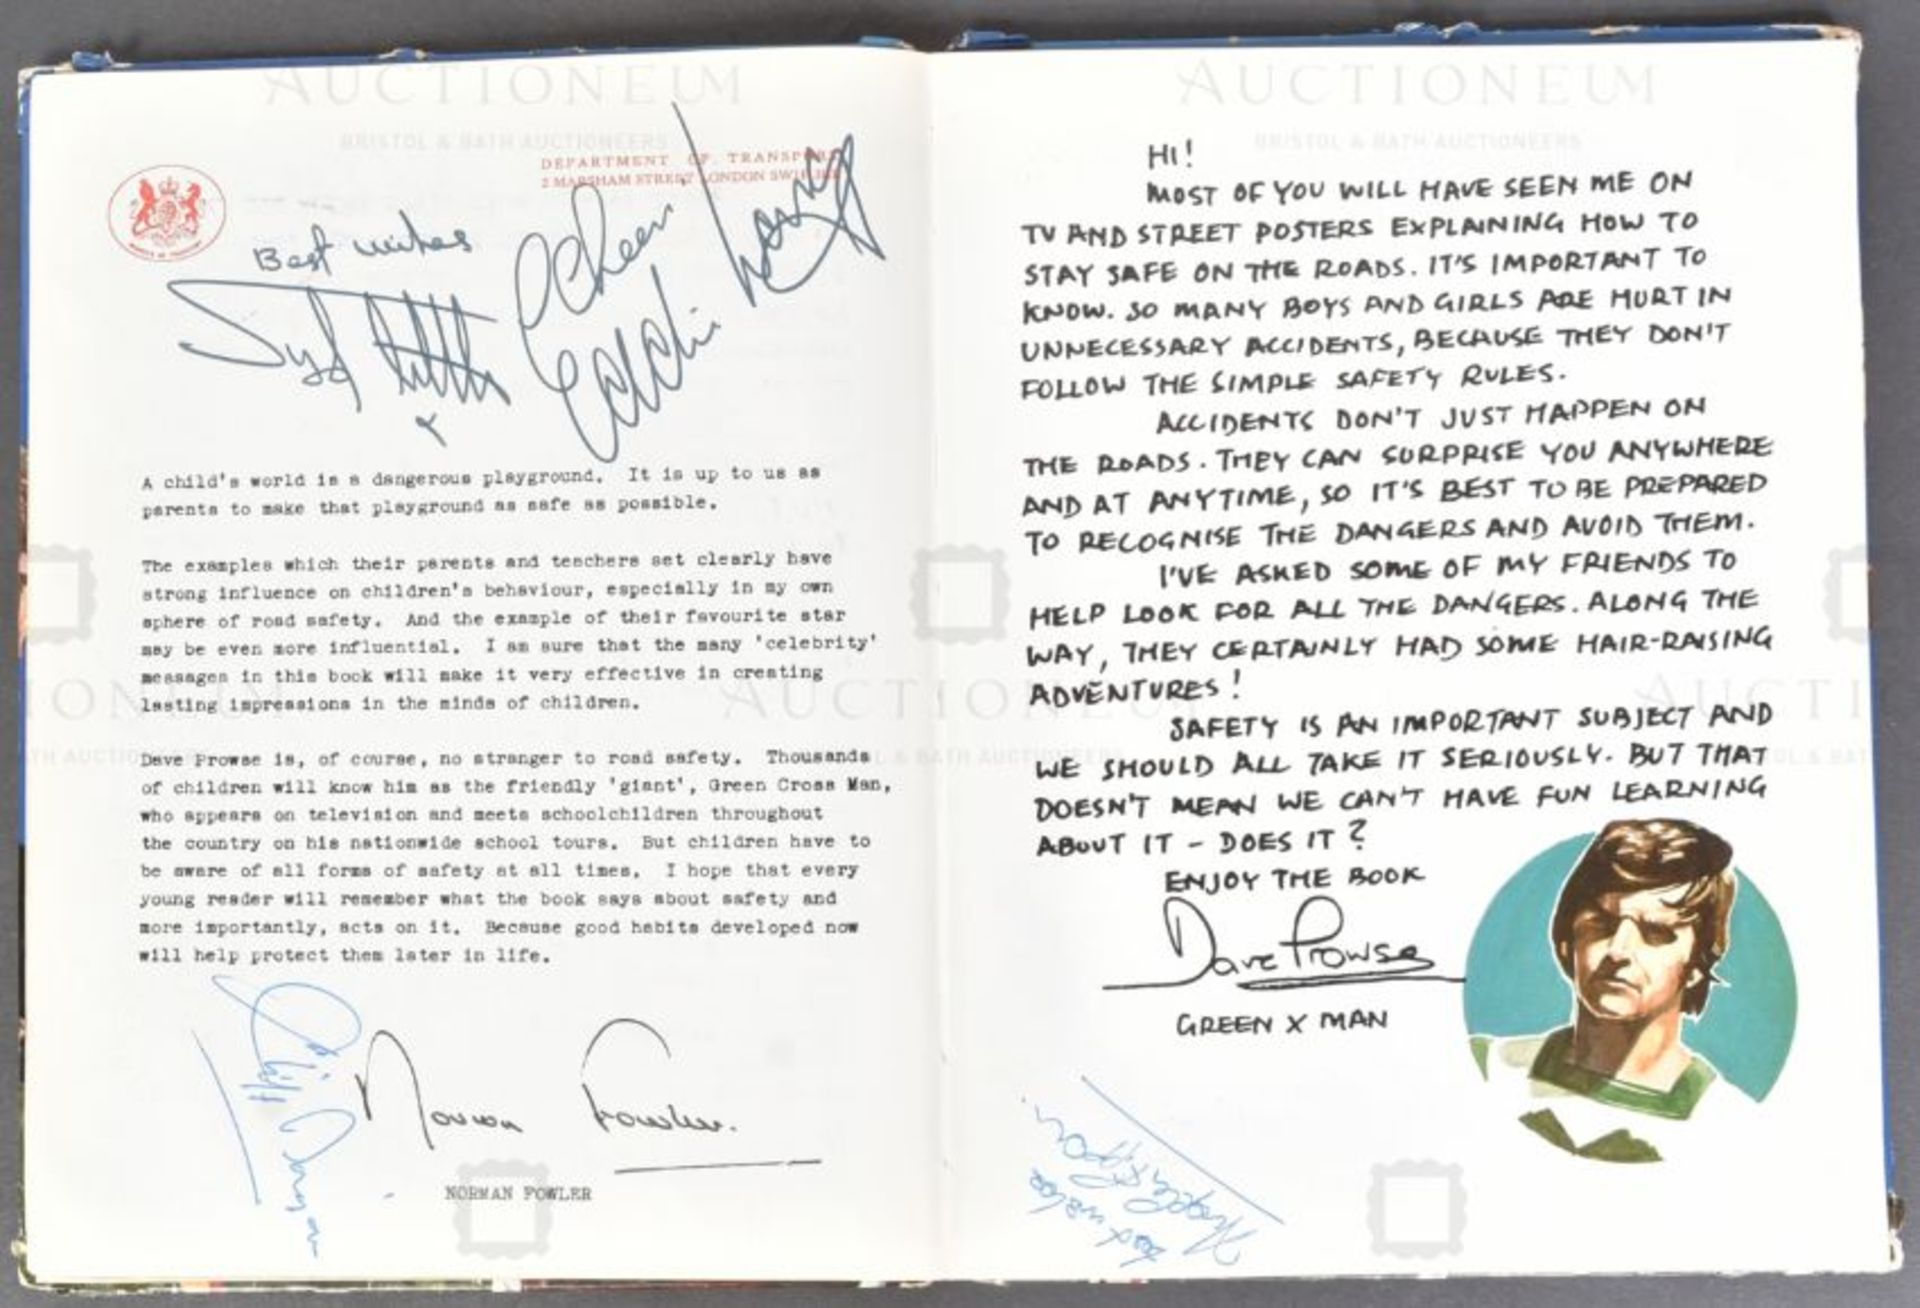 AUCTIONEUM
BRISTOL & BATH AUCTIONEERS
DEPARTMENT OF TRANSPORT
2 MARSHAM STREET LONDON SW1P 3EB
Best wishes
Syd Little
&
Cheers
Eddie Large
A child's world is a dangerous playground. It is up to us as
parents to make that playground as safe as possible.
The examples which their parents and teachers set clearly have
strong influence on children's behaviour, especially in my own
sphere of road safety. And the example of their favourite star
may be even more influential. I am sure that the many 'celebrity'
messages in this book will make it very effective in creating
lasting impressions in the minds of children.
Dave Prowse is, of course, no stranger to road safety. Thousands
of children will know him as the friendly 'giant', Green Cross Man,
who appears on television and meets schoolchildren throughout
the country on his nationwide school tours. But children have to
be aware of all forms of safety at all times. I hope that every
young reader will remember what the book says about safety and
more importantly, acts on it. Because good habits developed now
will help protect them later in life.
Norman Fowler.
NORMAN FOWLER
AUCTIONEUM
BRISTOL & BATH AUCTIONEERS
HI!
MOST OF YOU WILL HAVE SEEN ME ON
TV AND STREET POSTERS EXPLAINING HOW TO
STAY SAFE ON THE ROADS. IT'S IMPORTANT TO
KNOW. SO MANY BOYS AND GIRLS ARE HURT IN
UNNECESSARY ACCIDENTS, BECAUSE THEY DON'T
FOLLOW THE SIMPLE SAFETY RULES.
ACCIDENTS DON'T JUST HAPPEN ON
THE ROADS. THEY CAN SURPRISE YOU ANYWHERE
AND AT ANYTIME, SO IT'S BEST TO BE PREPARED
TO RECOGNISE THE DANGERS AND AVOID THEM.
I'VE ASKED SOME OF MY FRIENDS TO
HELP LOOK FOR ALL THE DANGERS. ALONG THE
WAY, THEY CERTAINLY HAD SOME HAIR-RAISING
ADVENTURES!
SAFETY IS AN IMPORTANT SUBJECT AND
WE SHOULD ALL TAKE IT SERIOUSLY. BUT THAT
DOESN'T MEAN WE CAN'T HAVE FUN LEARNING
ABOUT IT - DOES IT?
ENJOY THE BOOK
Dave Prowse
GREEN X MAN
Best wishes
Angela Rippon
AUCTIONEUM